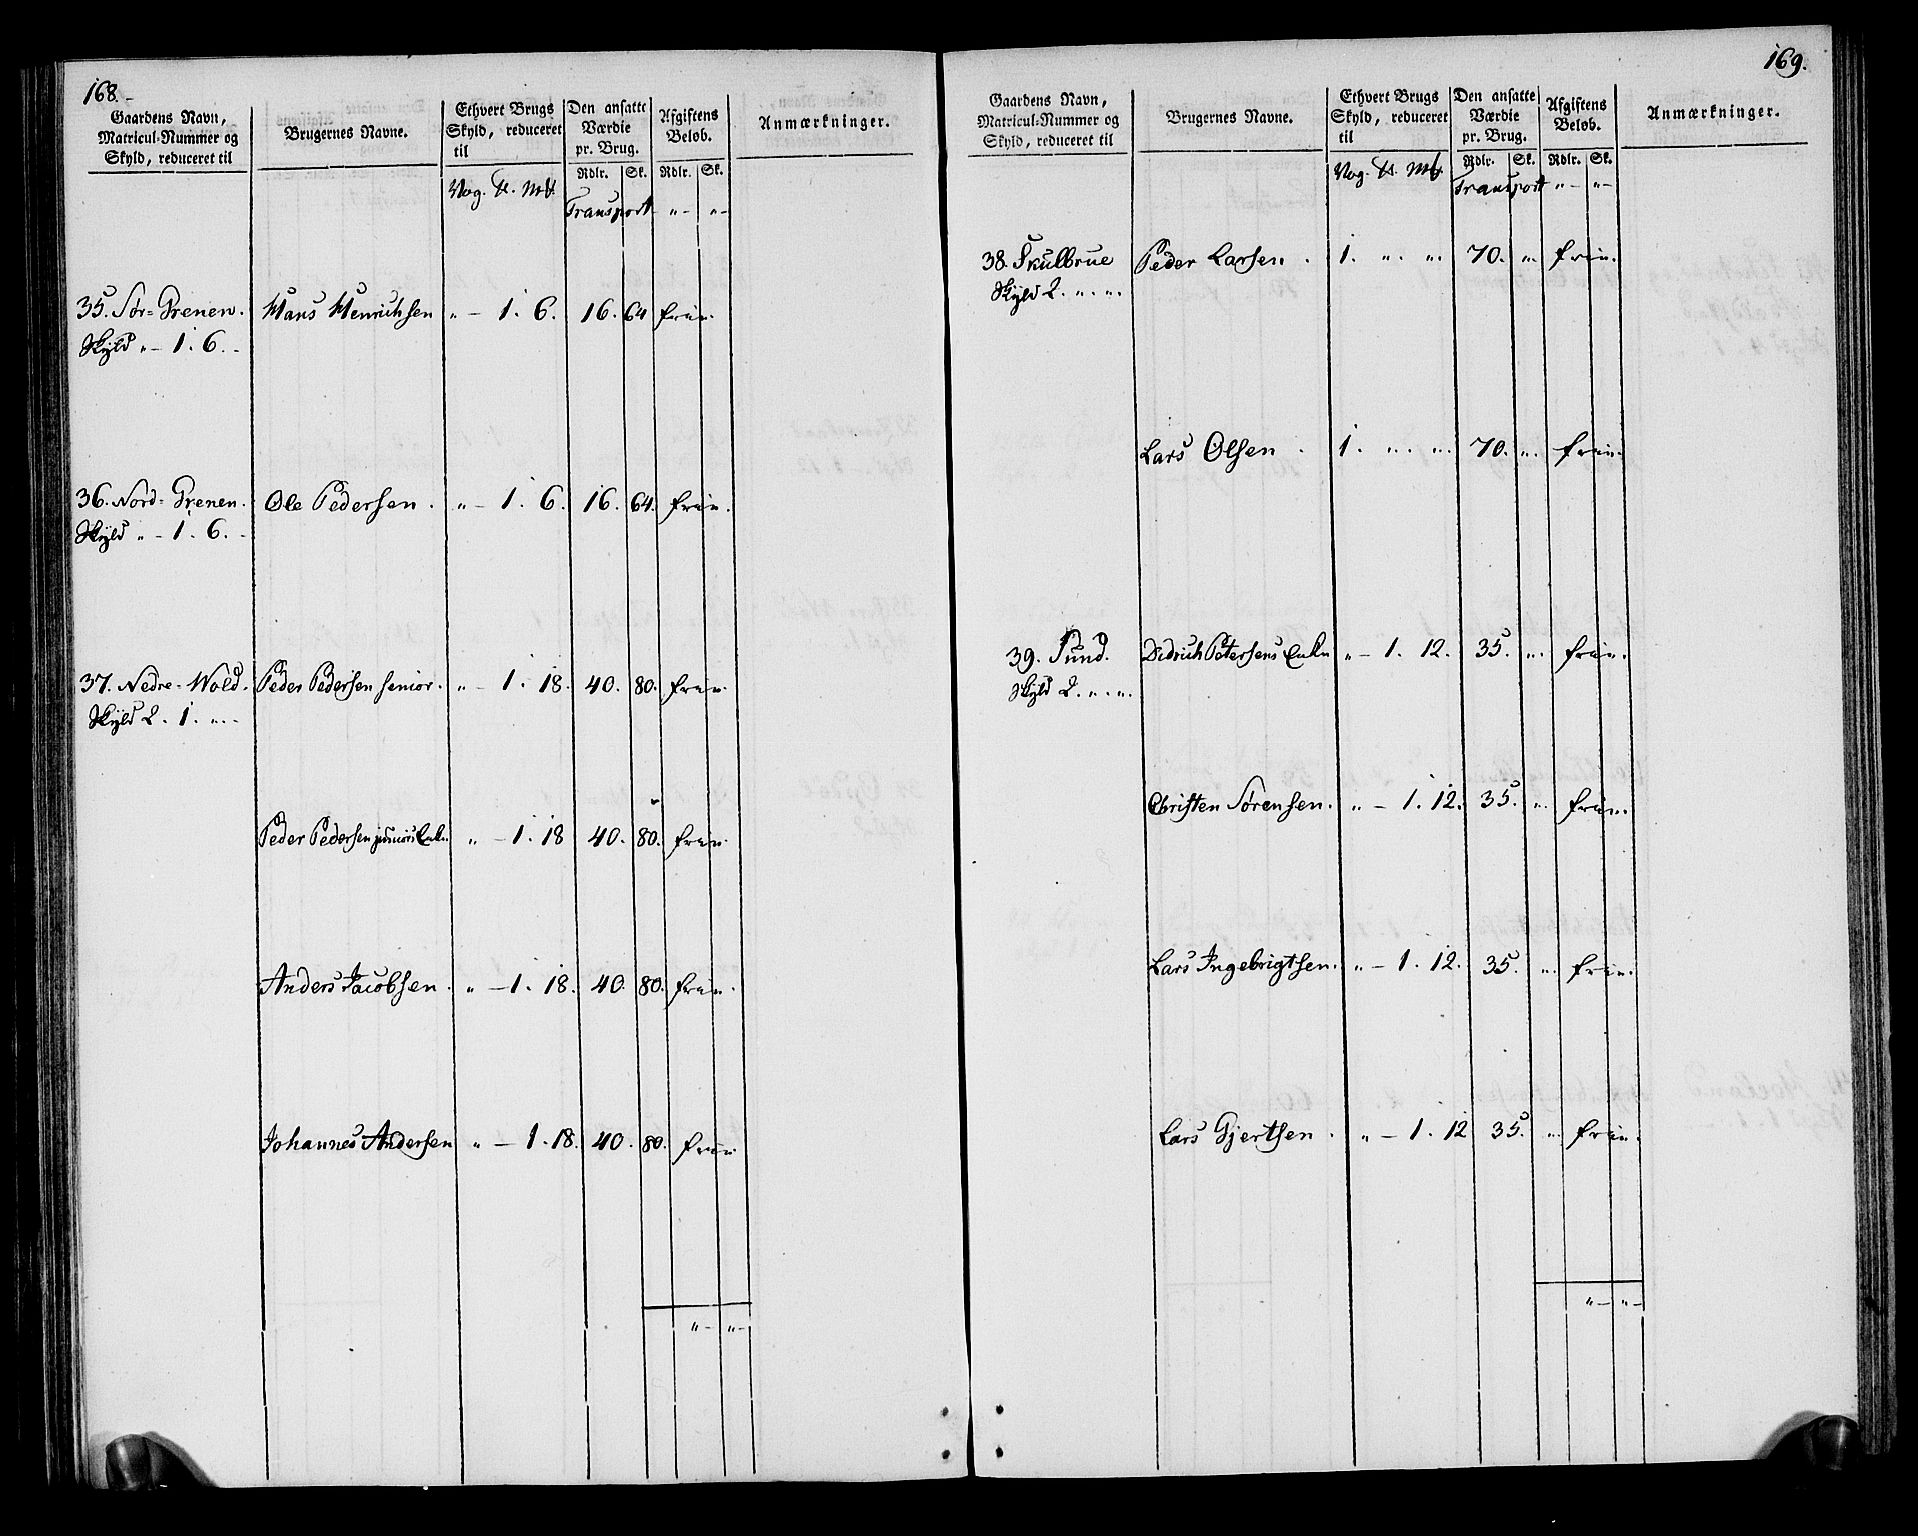 168.
Gaardens Navn, Matricul-Nummer og Skyld, reduceret til
Brugernes Navne.
Ethvert Brugs Skyld, reduceret til
Den ansatte Værdie pr. Brug.
Afgiftens Beløb.
Anmærkninger.
Vog. ℔. Mk
Rdlr. Sk. Rdlr. Sk.
Transport „ – „ –
35. Sør=Grenen. Hans Henrichsen „ – 1. 6. 16. 64 frie.
Skyld „ – 1. 6. –
36. Nord=Grenen. Ole Pedersen. „ – 1. 6. 16. 64. frie.
Skyld „ – 1. 6. –
37. Nedre=Wold. Peder Pedersen senior. „ – 1. 18. 40. 80. frie.
Skyld 2. 1. „ –
Peder Pedersen juniors Enke. „ – 1. 18 40. 80. frie.
Anders Jacobsen. „ – 1. 18. 40. 80. frie.
Johannes Andersen „ – 1. 18. 40. 80. frie
„ – „ –
169.
Gaardens Navn, Matricul-Nummer og Skyld, reduceret til
Brugernes Navne.
Ethvert Brugs Skyld, reduceret til
Den ansatte Værdie pr. Brug.
Afgiftens Beløb.
Anmærkninger.
Vog. ℔. Mk
Rdlr. Sk. Rdlr. Sk.
Transport „ – „ –
38. Skulbrue Peder Larsen. 1. „. „. 70. „. frie.
Skyld 2. „. „.
Lars Olsen. 1. „. „. 70. „. frie.
39. Sund. Didrich Petersens Enke „ – 1. 12. 35. „. frie.
Skyld 2. „. „.
Christen Sørensen. „ – 1. 12. 35. „. frie.
Lars Ingebrigtsen. „ – 1. 12. 35. „. frie.
Lars Gjertsen. „ – 1. 12 35. „. frie.
„ – „ –